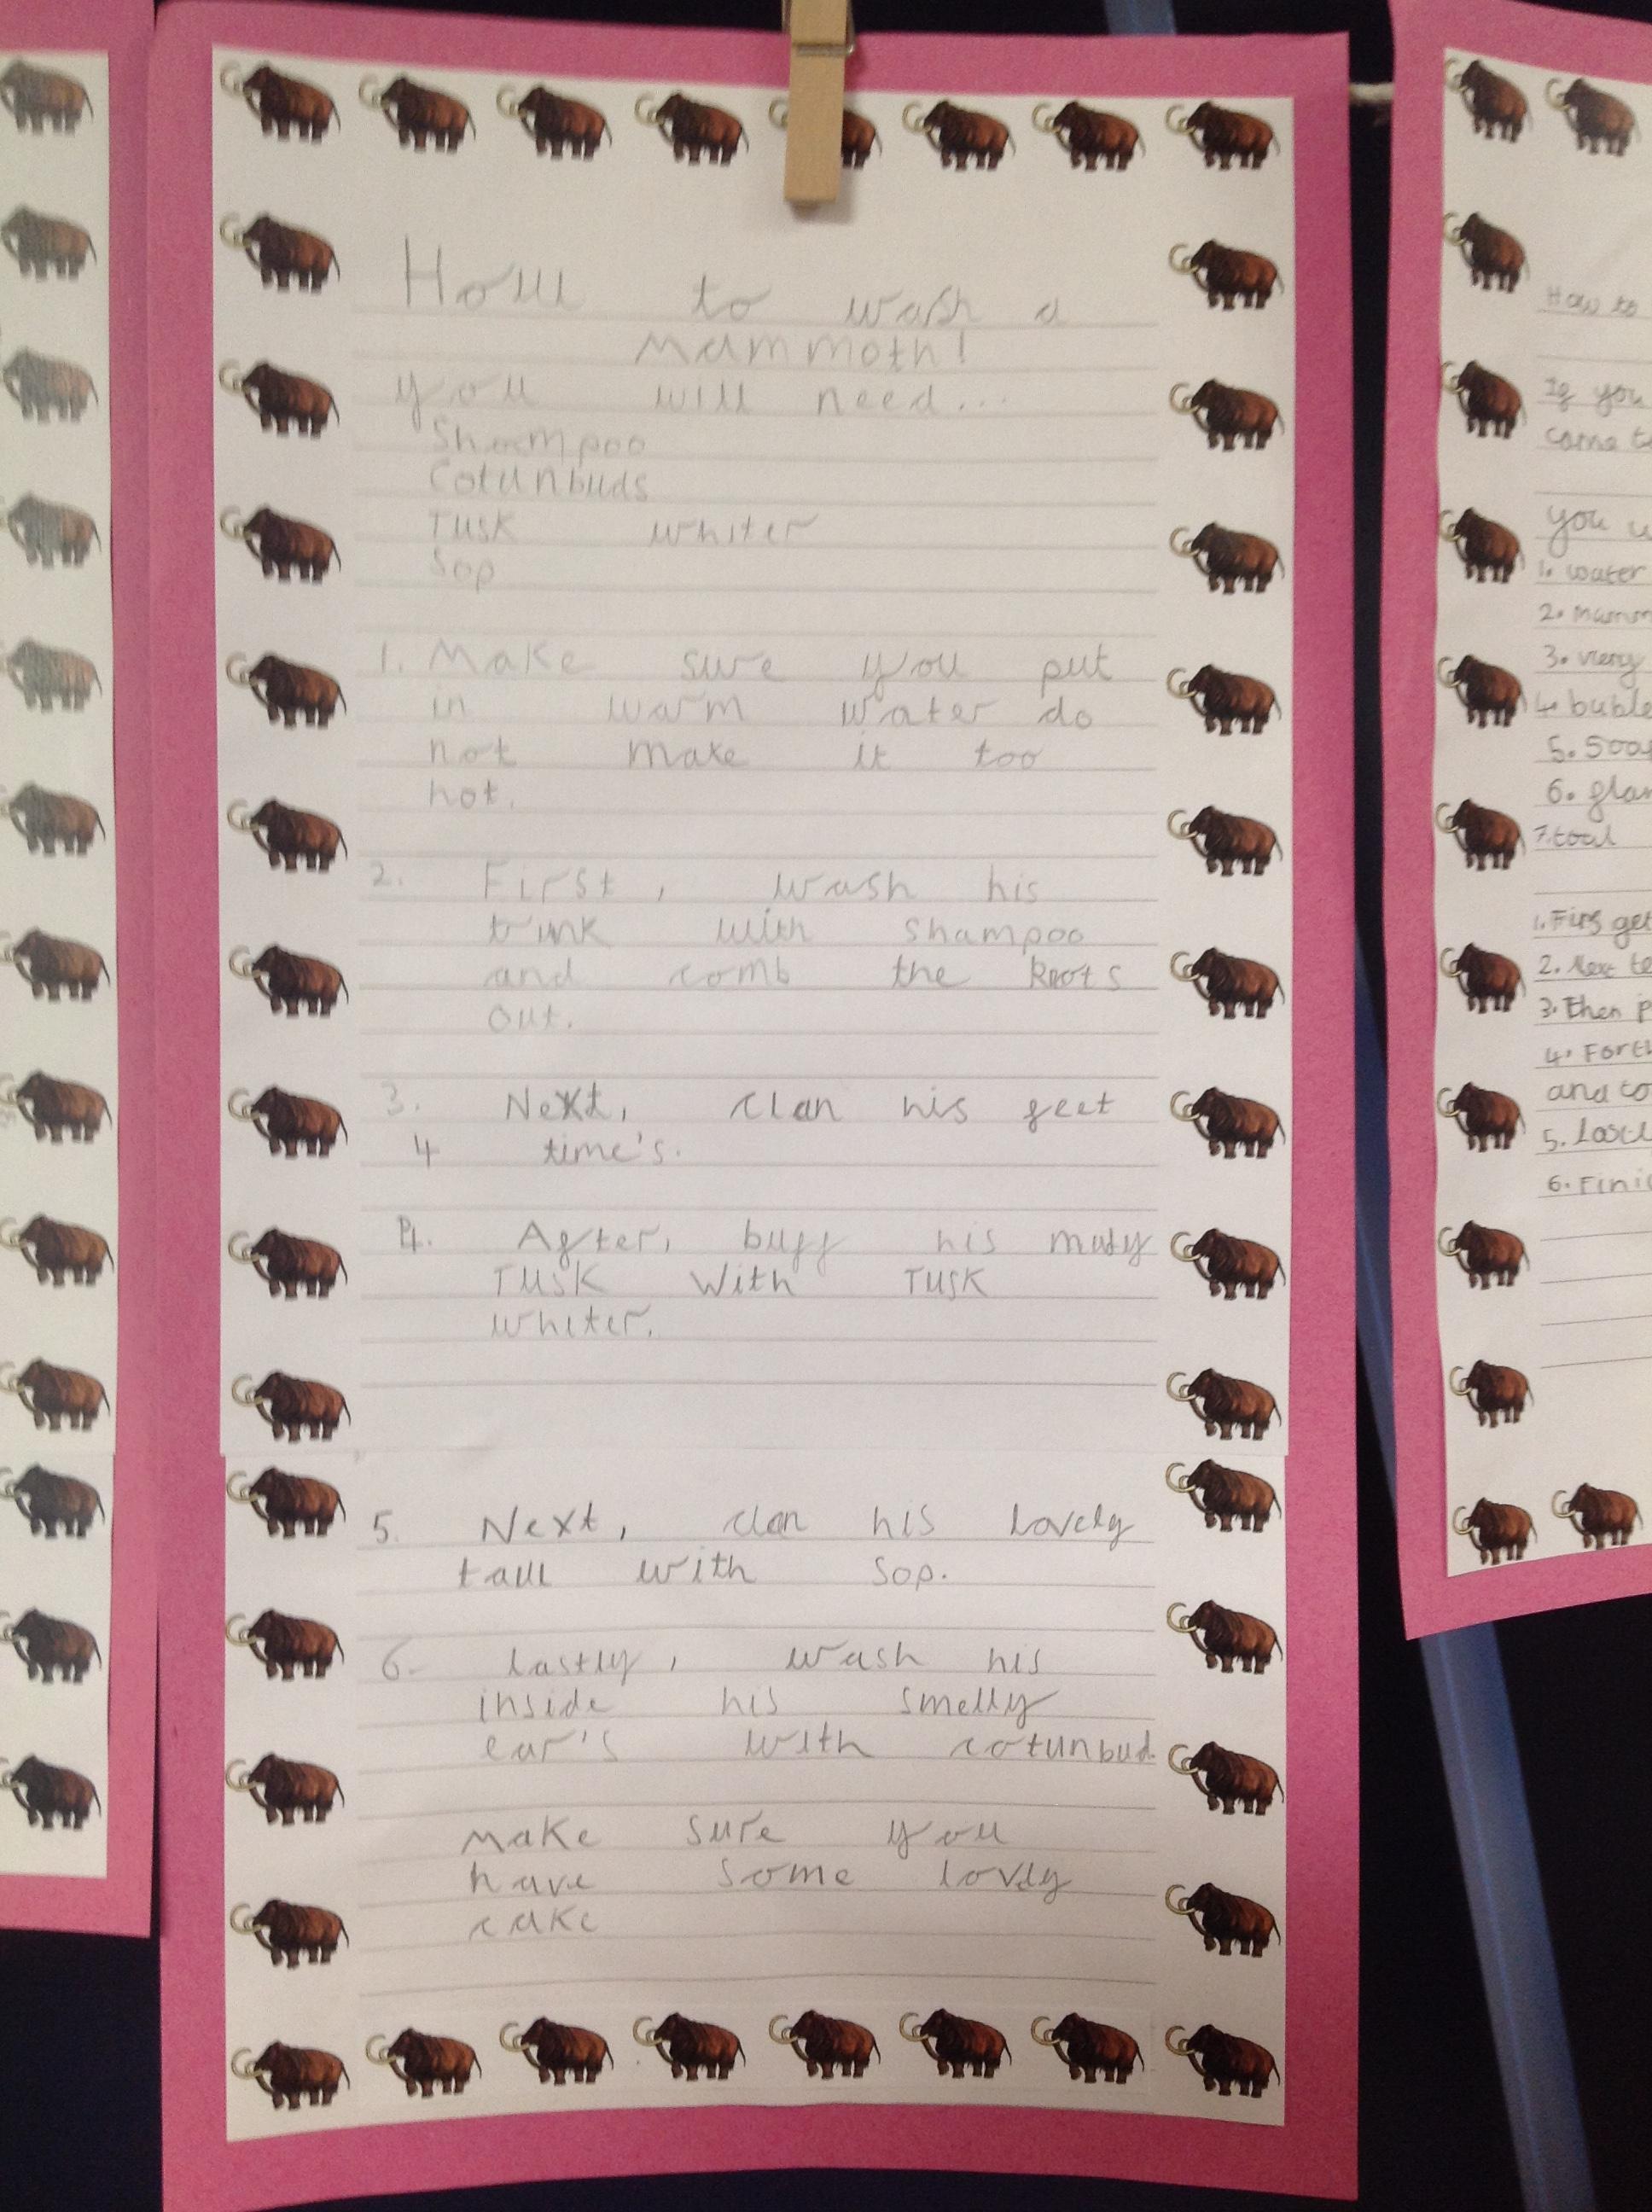 How to wash a
Mammoth!
you will need...
Shampoo
Cotunbuds
Tusk whiter
Sop
1. Make sure you put
in warm water do
not make it too
hot.
2. First, wash his
trunk with shampoo
and comb the knots
out.
3. Next, clan his feet
4 time's.
4. After, buff his mudy
Tusk with Tusk
whiter.
5. Next, clan his lovely
tail with sop.
6. Lastly, wash his
inside his smelly
ear's with cotunbud.
Make sure you
have some lovly
cake
How to
If you
come to
you
1. water
2. mamm
3. very
4. buble
5. Soa
6. flan
7. toul
1. Firs get
2. Nex te
3. Then p
4. Forth
and co
5. Lastl
6. Finis